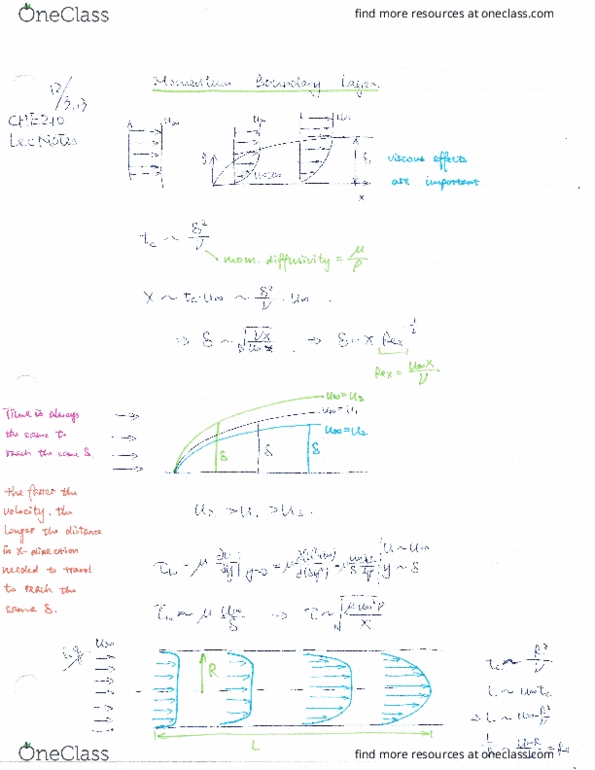 OneClass
find more resources at oneclass.com
12/3.13
CHE210
Lec Notes
Momentum Boundary Layer.
U∞
U∞
U∞
y
δ
x
viscous effects
are important
t_c ~ δ²/ν
mom. diffusivity = μ/ρ
x ~ t_c·U∞ ~ δ²/ν · U∞
⇒ δ ~ √(νx/U∞) ⇒ δ ~ x Rex^(-1/2)
Rex = U∞x/ν
Time is always
the same to
reach the same δ.
U∞=U3
U∞=U1
U∞=U2
δ
δ
δ
the faster the
velocity, the
longer the distance
in x-direction
needed to travel
to reach the
same δ.
U2 > U1 > U3.
y=0
U ~ U∞
y ~ δ
τw ~ μ U∞/δ ⇒ τ ~ √(μU∞³ρ/x)
e.g.
U∞
R
L
t_c ~ R²/ν
L ~ U∞t_c
⇒ L ~ U∞ R²/ν
OneClass
find more resources at oneclass.com